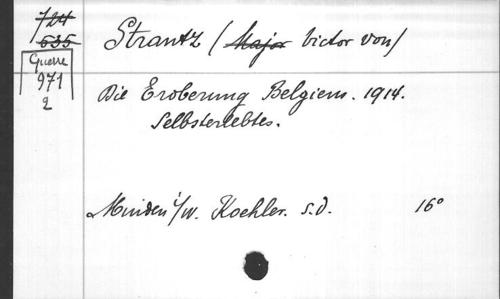 724
635
Guerre
971
2
Strantz (Major Victor von)
Die Eroberung Belgiens. 1914.
Selbsterlebtes.
Minden i/w. Koehler. s.d. 16°